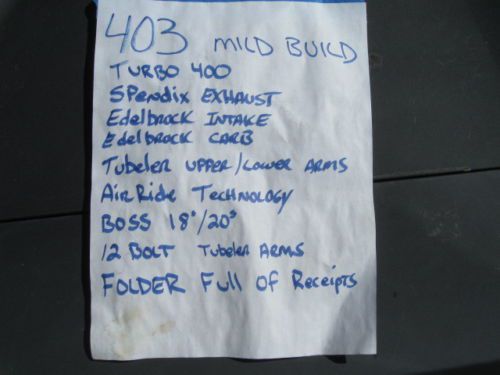 403 MILD BUILD
TURBO 400
SPendix EXHAUST
Edelbrock INTAKE
Edelbrock CARB
Tubeler UPPER/LOWER ARMS
AirRide Technology
BOSS 18"/20"
12 BOLT Tubeler ARMS
FOLDER Full of Receipts